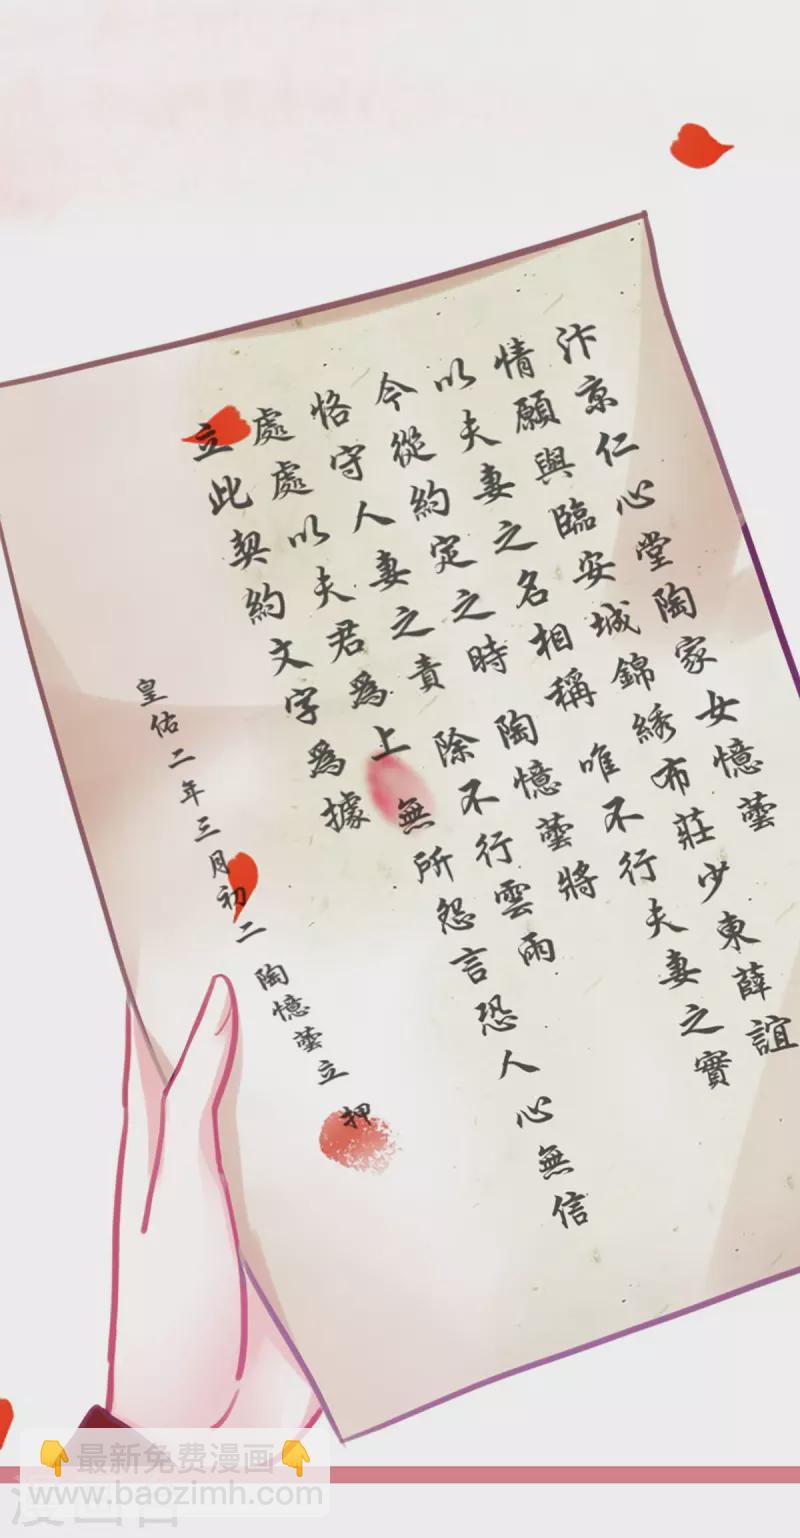 汴京仁心堂陶家女憶蕓
情願與臨安城錦綉布莊少東薛誼
以夫妻之名相稱 唯不行夫妻之實
今從約定之時 陶憶蕓將
恪守人妻之責 除不行雲雨
處處以夫君爲上 無所怨言恐人心無信
立此契約文字爲據
皇佑二年三月初二 陶憶蕓立 押
👇最新免费漫画👇
www.baozimh.com